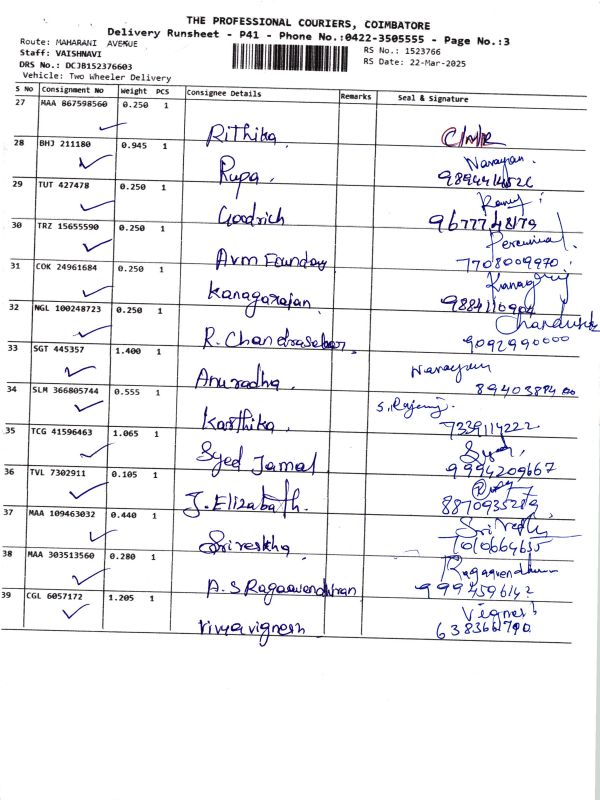 THE PROFESSIONAL COURIERS, COIMBATORE
Delivery Runsheet - P41 - Phone No.:0422-3505555 - Page No.:3
Route: MAHARANI AVENUE
RS No.: 1523766
Staff: VAISHNAVI
RS Date: 22-Mar-2025
DRS No.: DCJB152376603
Vehicle: Two Wheeler Delivery
S No Consignment No Weight PCS Consignee Details Remarks Seal & Signature
27 MAA 867598560 0.250 1
Rithika
28 BHJ 211180 0.945 1
Narayan.
Rupa.
29 TUT 427478 0.250 1
Goodrich
9677748179
30 TRZ 15655590 0.250 1
Perumal.
Avm Foundary
7708009970
31 COK 24961684 0.250 1
Kanagarajan
9884110904
32 NGL 100248723 0.250 1
R. Chandrasekar.
9092990000
33 SGT 445357 1.400 1
Narayan
Anuradha.
34 SLM 366805744 0.555 1
Karthika.
7339114222
35 TCG 41596463 1.065 1
Syed
Syed Jamal
9994209667
36 TVL 7302911 0.105 1
J. Elizabath.
8870935289
37 MAA 109463032 0.440 1
Srirekha
38 MAA 303513560 0.280 1
A.S Ragaavendhran
39 CGL 6057172 1.205 1
Vignesh
Vivyavignesh
6383661790